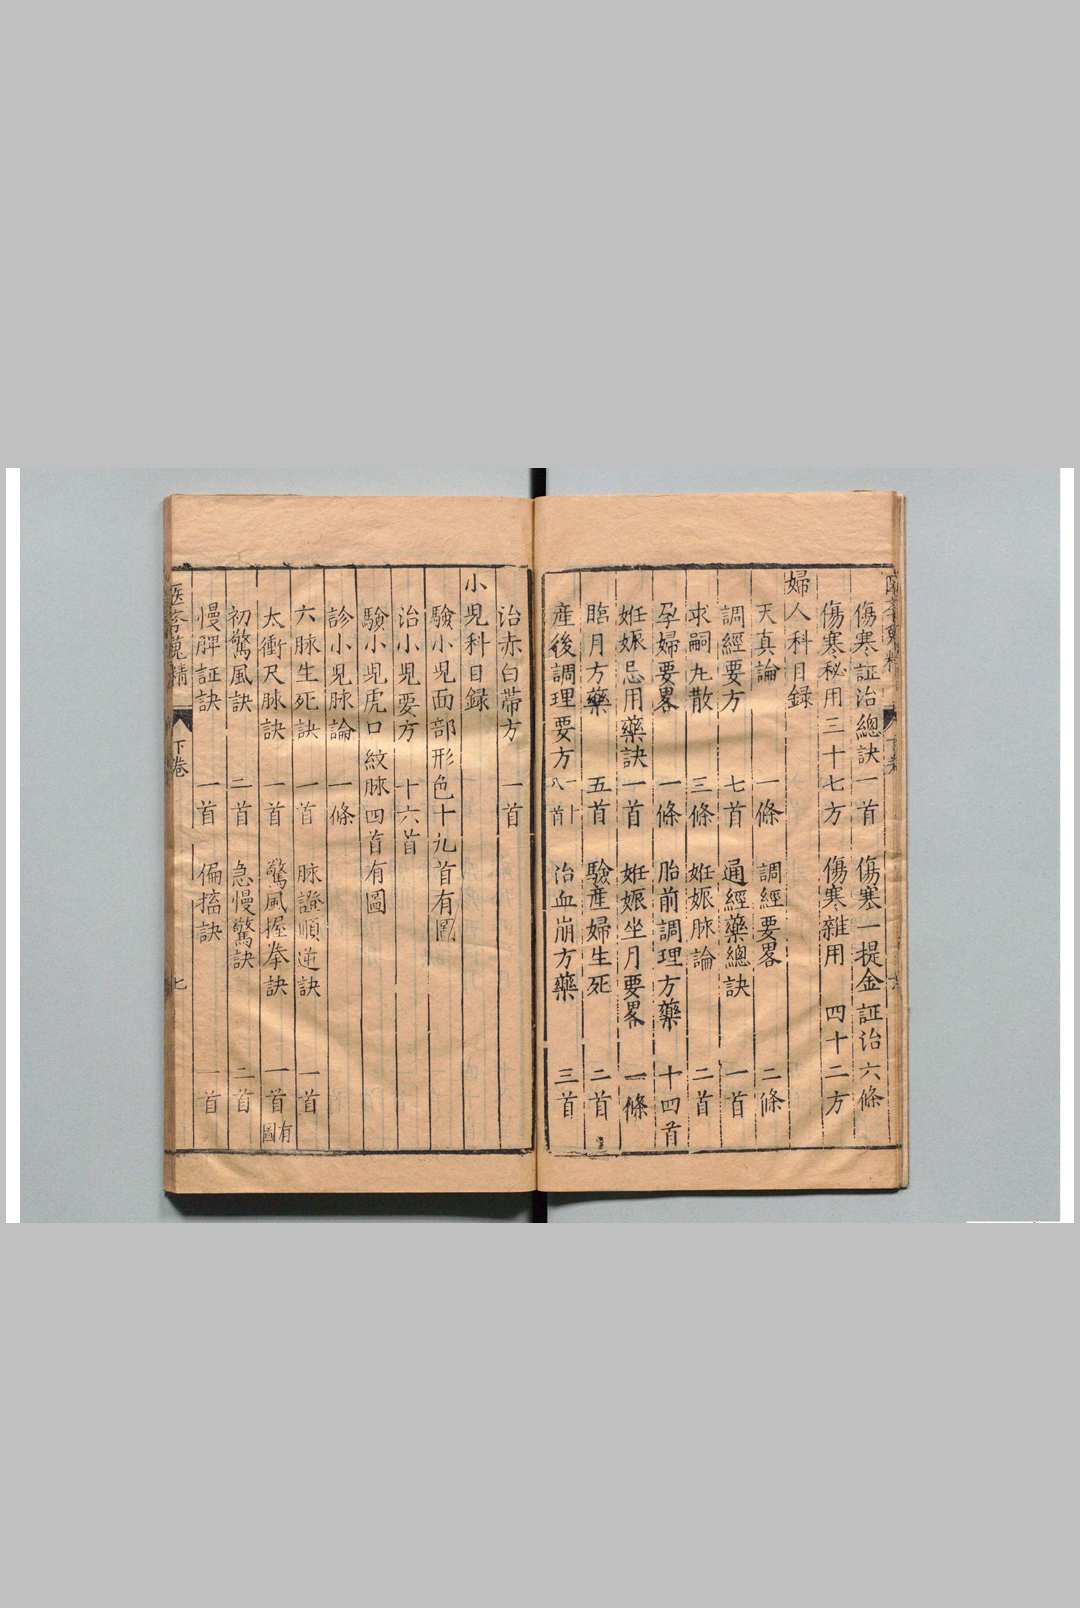 傷寒証治總訣一首　傷寒一提金証治六條
傷寒秘用三十七方　傷寒雜用　四十二方
婦人科目録
天真論　一條　調經要畧　二條
調經要方　七首　通經藥總訣　一首
求嗣丸散　三條　妊娠脉論　二首
孕婦要畧　一條　胎前調理方藥　十四首
妊娠忌用藥訣一首　妊娠坐月要畧　一條
臨月方藥　五首　驗產婦生死　二首
産後調理要方　一十八首　治血崩方藥　三首
治赤白帶方　一首
小兒科目録
驗小兒面部形色十九首有圖
治小兒要方　十六首
驗小兒虎口紋脉四首有圖
診小兒脉論　一條
六脉生死訣　一首　脉證順逆訣　一首
太衝尺脉訣　一首　驚風握拳訣　一首有圖
初驚風訣　二首　急慢驚訣　二首
慢脾証訣　一首　偏搐訣　一首
下卷　七